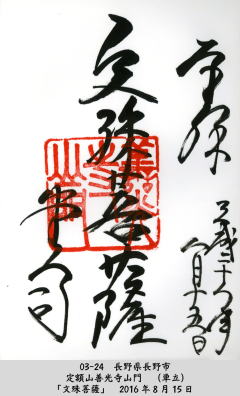 奉拝
平成二十八年
八月十五日
文殊菩薩
03-24 長野県長野市
定額山善光寺山門 （単立）
「文殊菩薩」 2016年8月15日